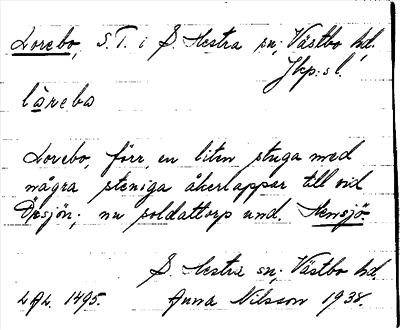 Lorebo, S.T. i S. Hestra sn; Västbo hd,
Jkp:s l.
lɑ̊rebo
Lorebo, förr en liten stuga med
några steniga åkerlappar till vid
Örsjön; nu soldattorp und. Hemsjö
S. Hestra sn; Västbo hd.
LAL. 1495. Anna Nilsson 1938.